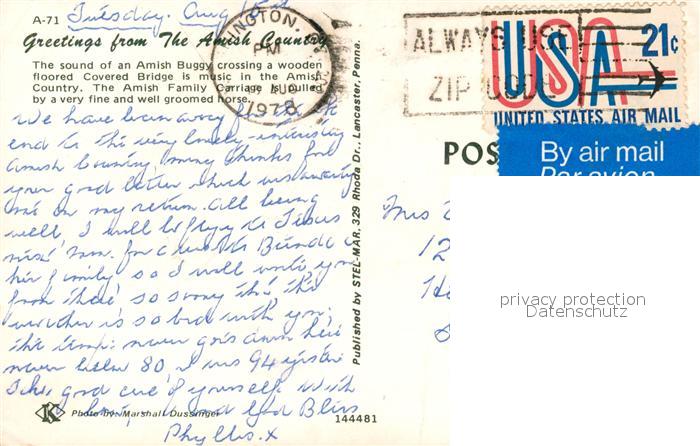 A-71 Tuesday. Aug
Greetings from The Amish Country
The sound of an Amish Buggy crossing a wooden
floored Covered Bridge is music in the Amish
Country. The Amish Family Carriage is pulled
by a very fine and well groomed horse.
We have been away
end to the very lovely interesting
Amish Country, many thanks for
your good letter which was awaiting
me on my return. All being
well I will be flying to
next for a with
her family so I will write you
from there so sorry the
weather is so bad with you,
the temp: never goes down here
never below 80. I was 94
good care of yourself. With
and God Bless
Phyllis. x
K
Photo by: Marshall Dussinger
144481
Published by STEL-MAR, 329 Rhoda Dr., Lancaster, Penna.
INGTON.
PM
AUG
1978
ALWAYS USE
ZIP CODE
USA 21¢
UNITED STATES AIR MAIL
By air mail
Par avion
POS
Mrs
12
privacy protection
Datenschutz